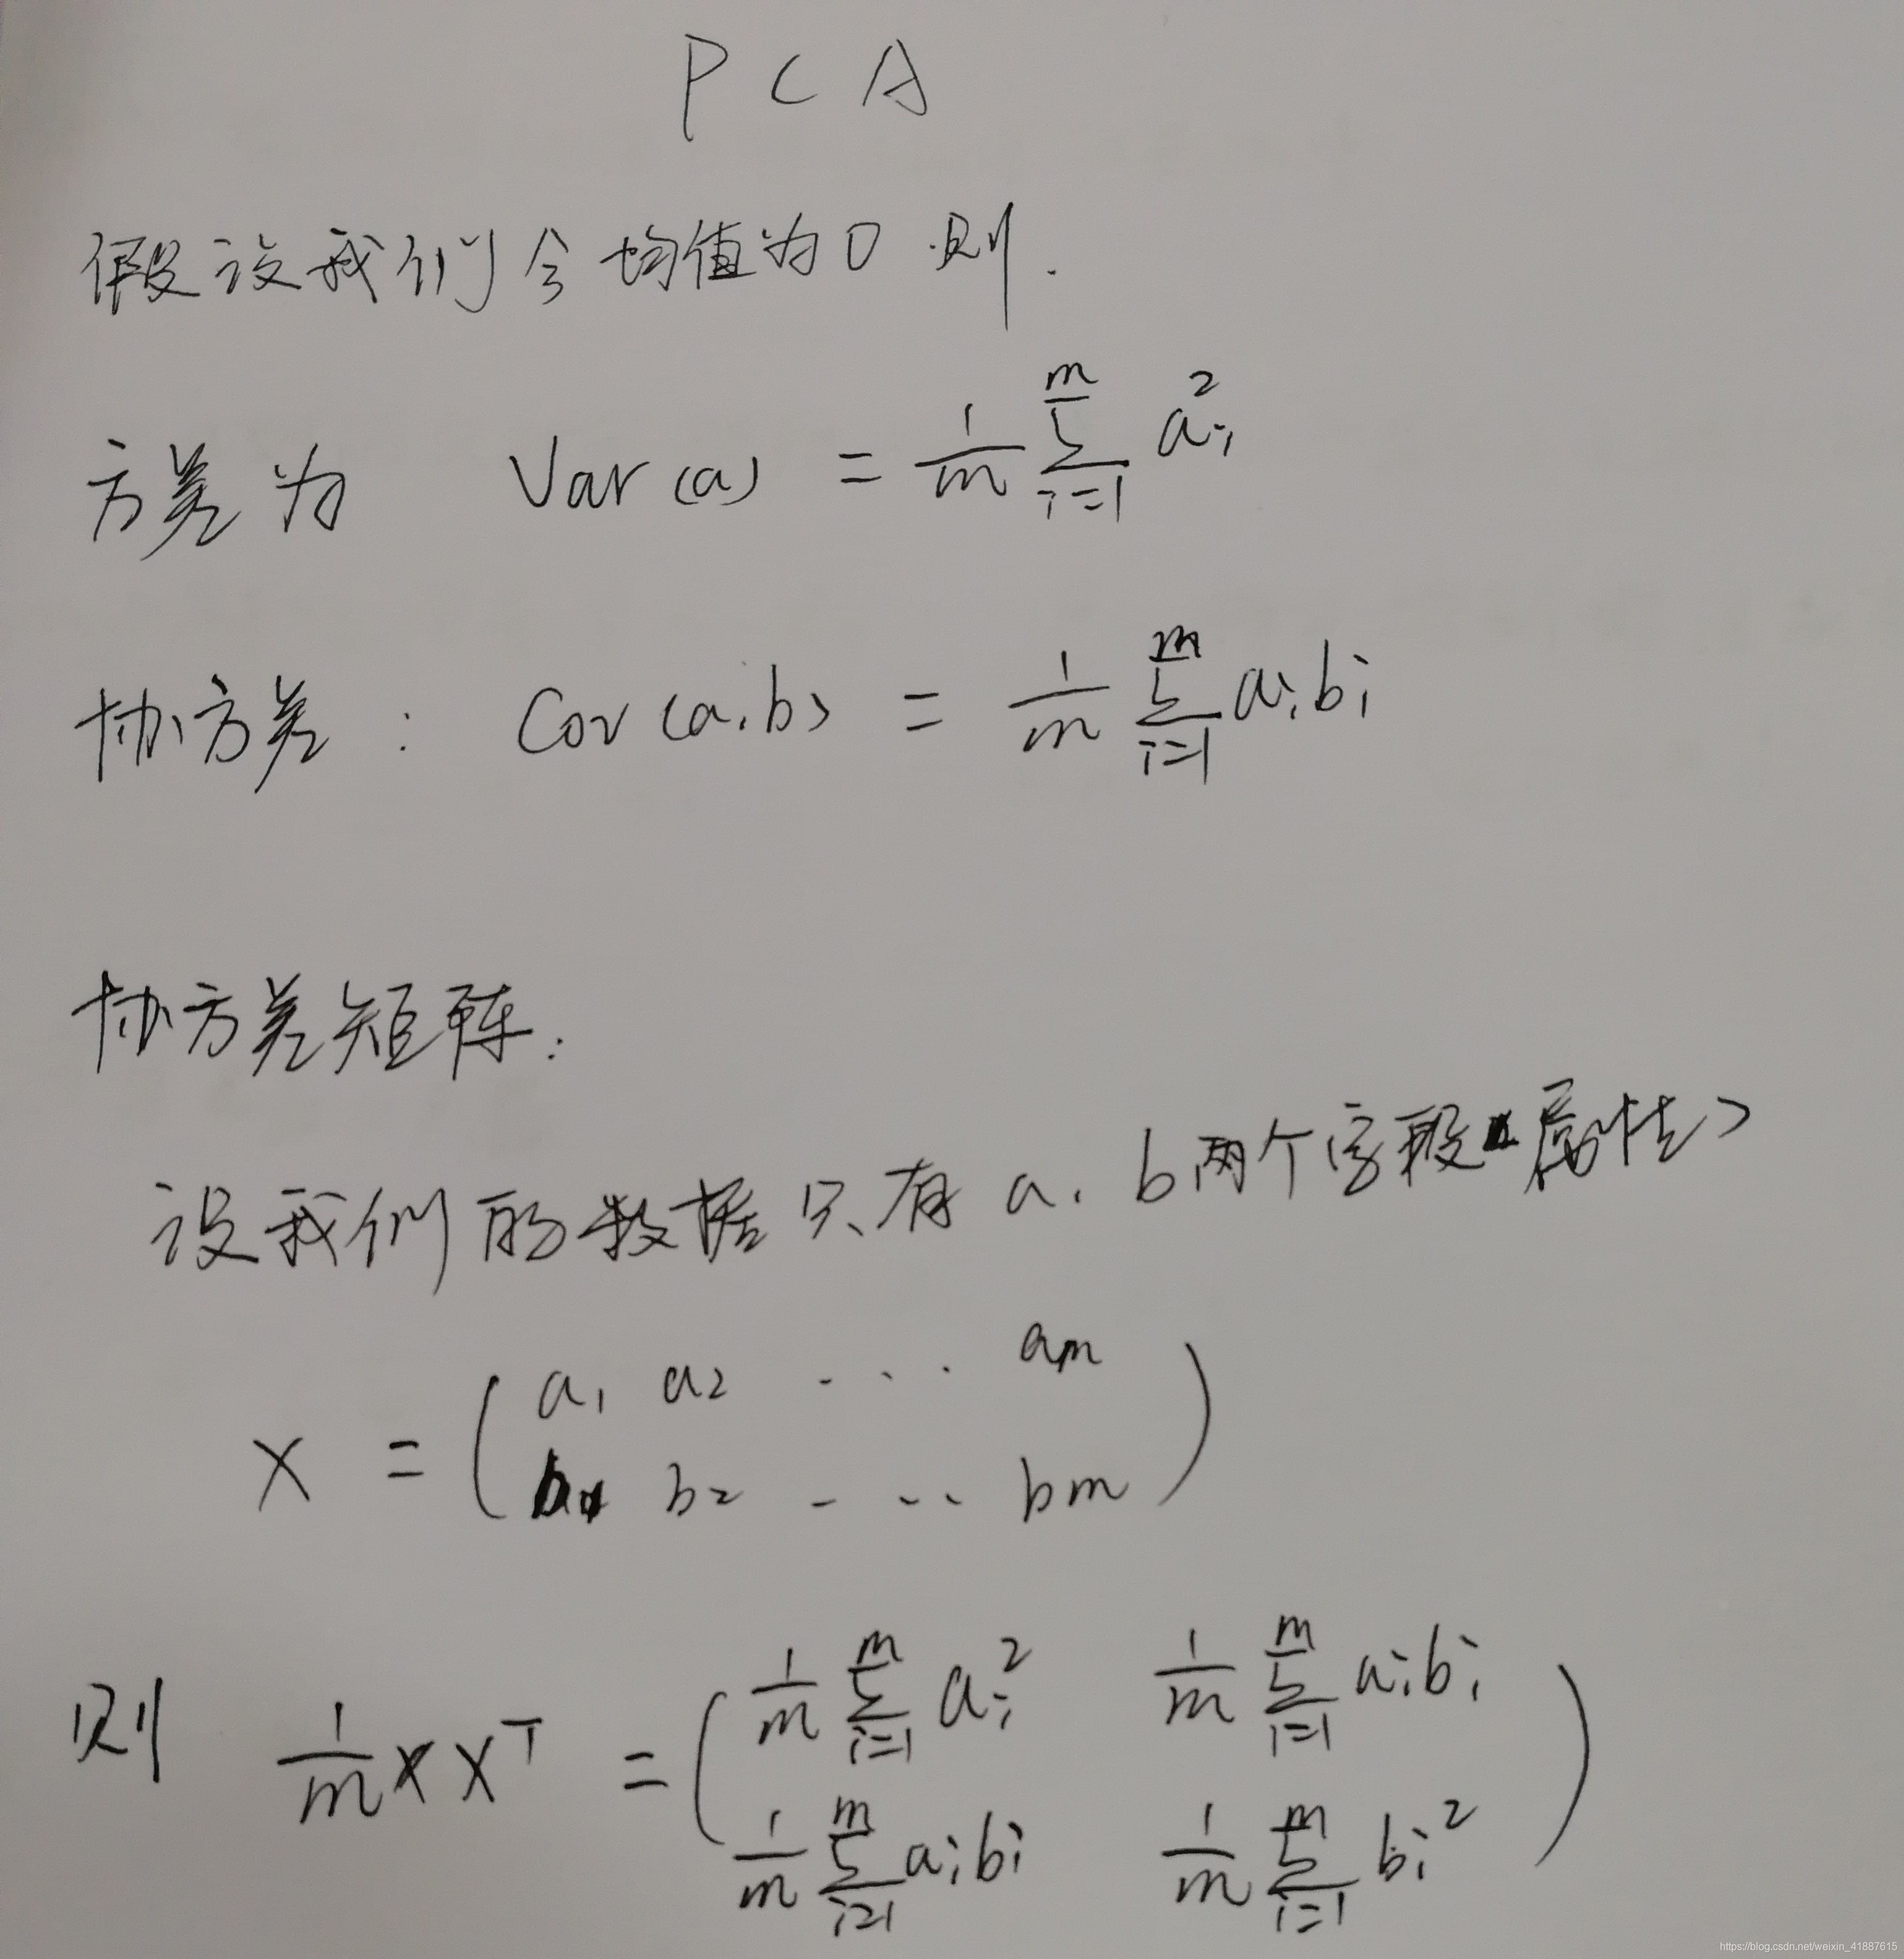 PCA
假设我们令均值为0 则.
方差为 Var(a) = \frac{1}{m} \sum_{i=1}^{m} a_i^2
协方差: Cov(a,b) = \frac{1}{m} \sum_{i=1}^{m} a_i b_i
协方差矩阵:
设我们的数据只有 a, b两个字段(属性)
X = \begin{pmatrix} a_1 & a_2 & \cdots & a_m \\ b_1 & b_2 & \cdots & b_m \end{pmatrix}
则 \frac{1}{m} X X^T = \begin{pmatrix} \frac{1}{m} \sum_{i=1}^{m} a_i^2 & \frac{1}{m} \sum_{i=1}^{m} a_i b_i \\ \frac{1}{m} \sum_{i=1}^{m} a_i b_i & \frac{1}{m} \sum_{i=1}^{m} b_i^2 \end{pmatrix}
https://blog.csdn.net/weixin_41887615